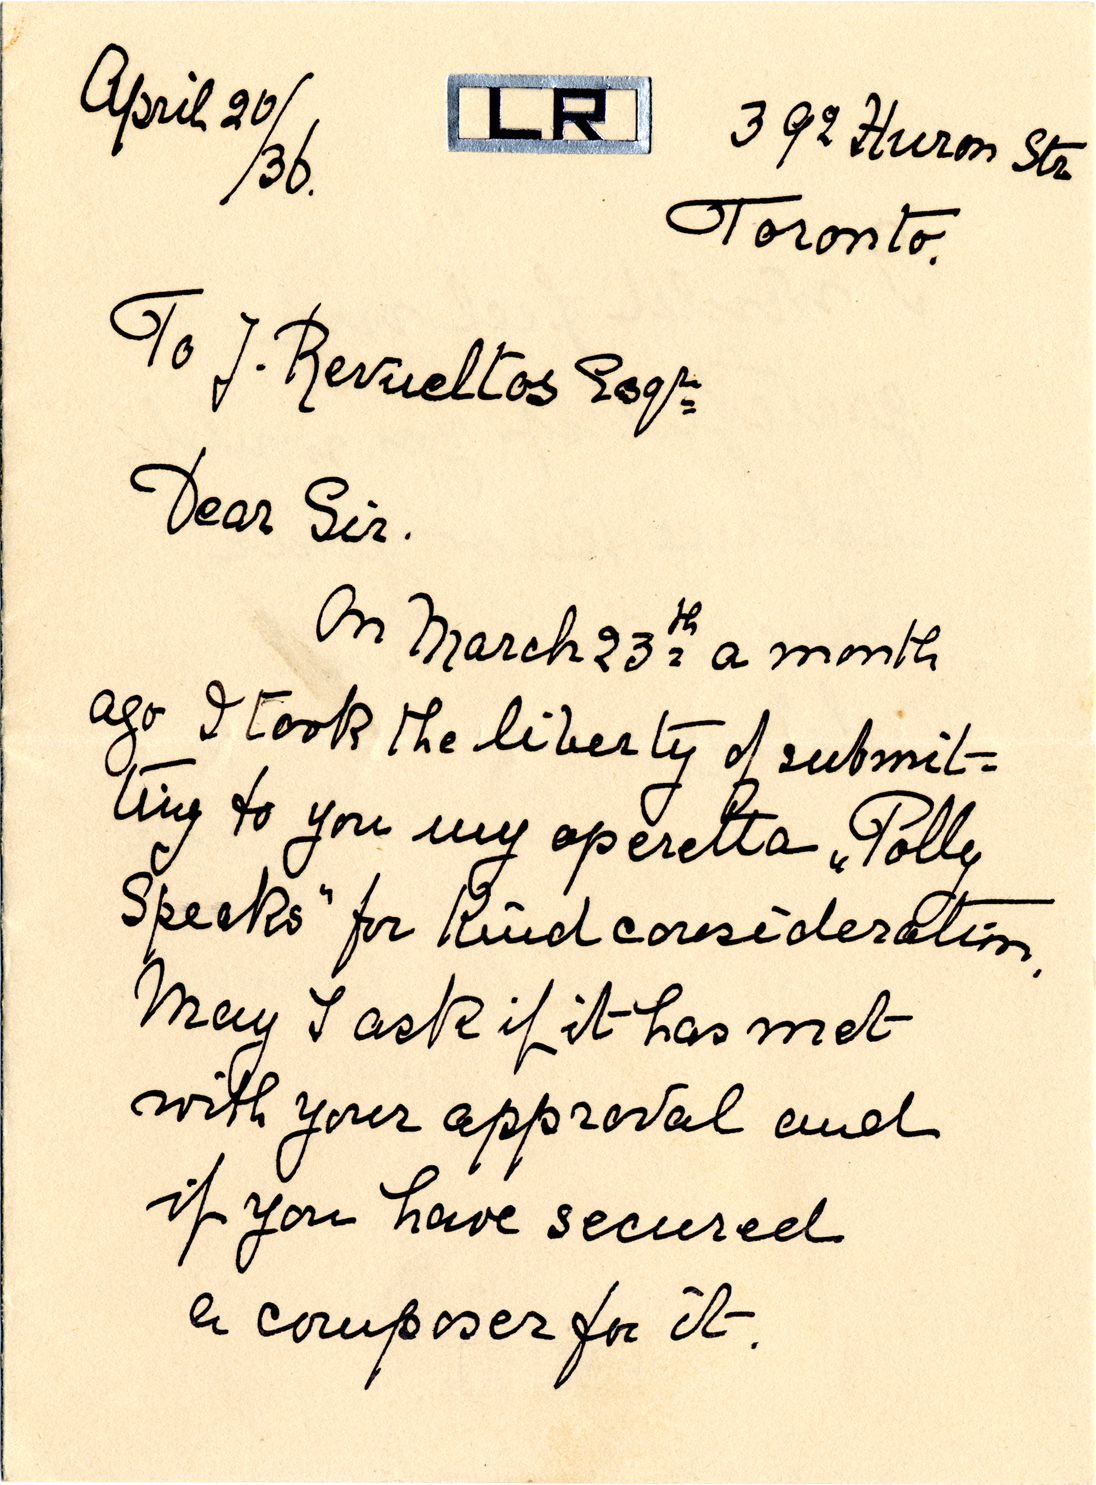 April 20/
/36.
LR
392 Huron Str
Toronto.
To J. Revueltos Esqr
Dear Sir.
On March 23th a month
ago I took the liberty of submit=
ting to you my operetta „Polly
Speaks" for kind consideration.
May I ask if it has met
with your approval and
if you have secured
a composer for it.